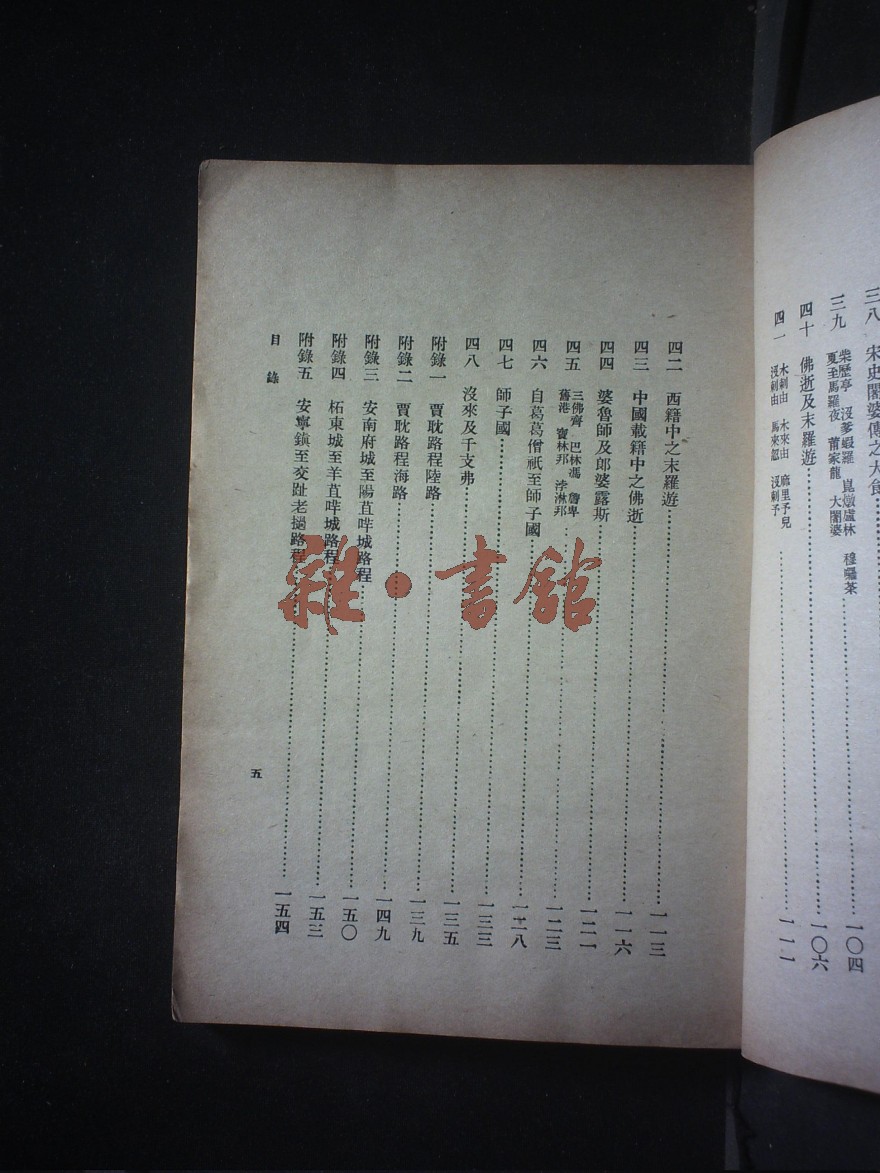 三八　宋史闍婆傳之大食
三九　柴歷亭　沒爹蝦羅　崑燉盧林　穆囉茶
夏至馬羅夜　莆家龍　大闍婆
一〇四
四十　佛逝及末羅遊
一〇六
四一　木剌由　木來由　麻里予兒
沒剌由　馬來忽　沒剌予
一一一
四二　西籍中之末羅遊
一一三
四三　中國載籍中之佛逝
一一六
四四　婆魯師及郎婆露斯
一二一
四五　三佛齊　巴林馮　詹卑
舊港　寶林邦　浡淋邦
一二三
四六　自葛葛僧祇至師子國
一二八
四七　師子國
一三三
四八　沒來及千支弗
一三五
附錄一　賈耽路程陸路
一三九
附錄二　賈耽路程海路
一四九
附錄三　安南府城至陽苴哶城路程
一五〇
附錄四　柘東城至羊苴哶城路程
一五三
附錄五　安寧鎮至交趾老撾路程
一五四
目錄
五
雜·書館